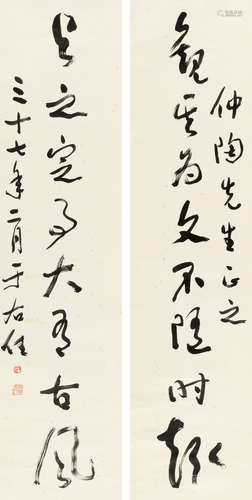 仲陶先生正之
觀其為文不隨時趣
與之定事大有古風
三十七年二月于右任